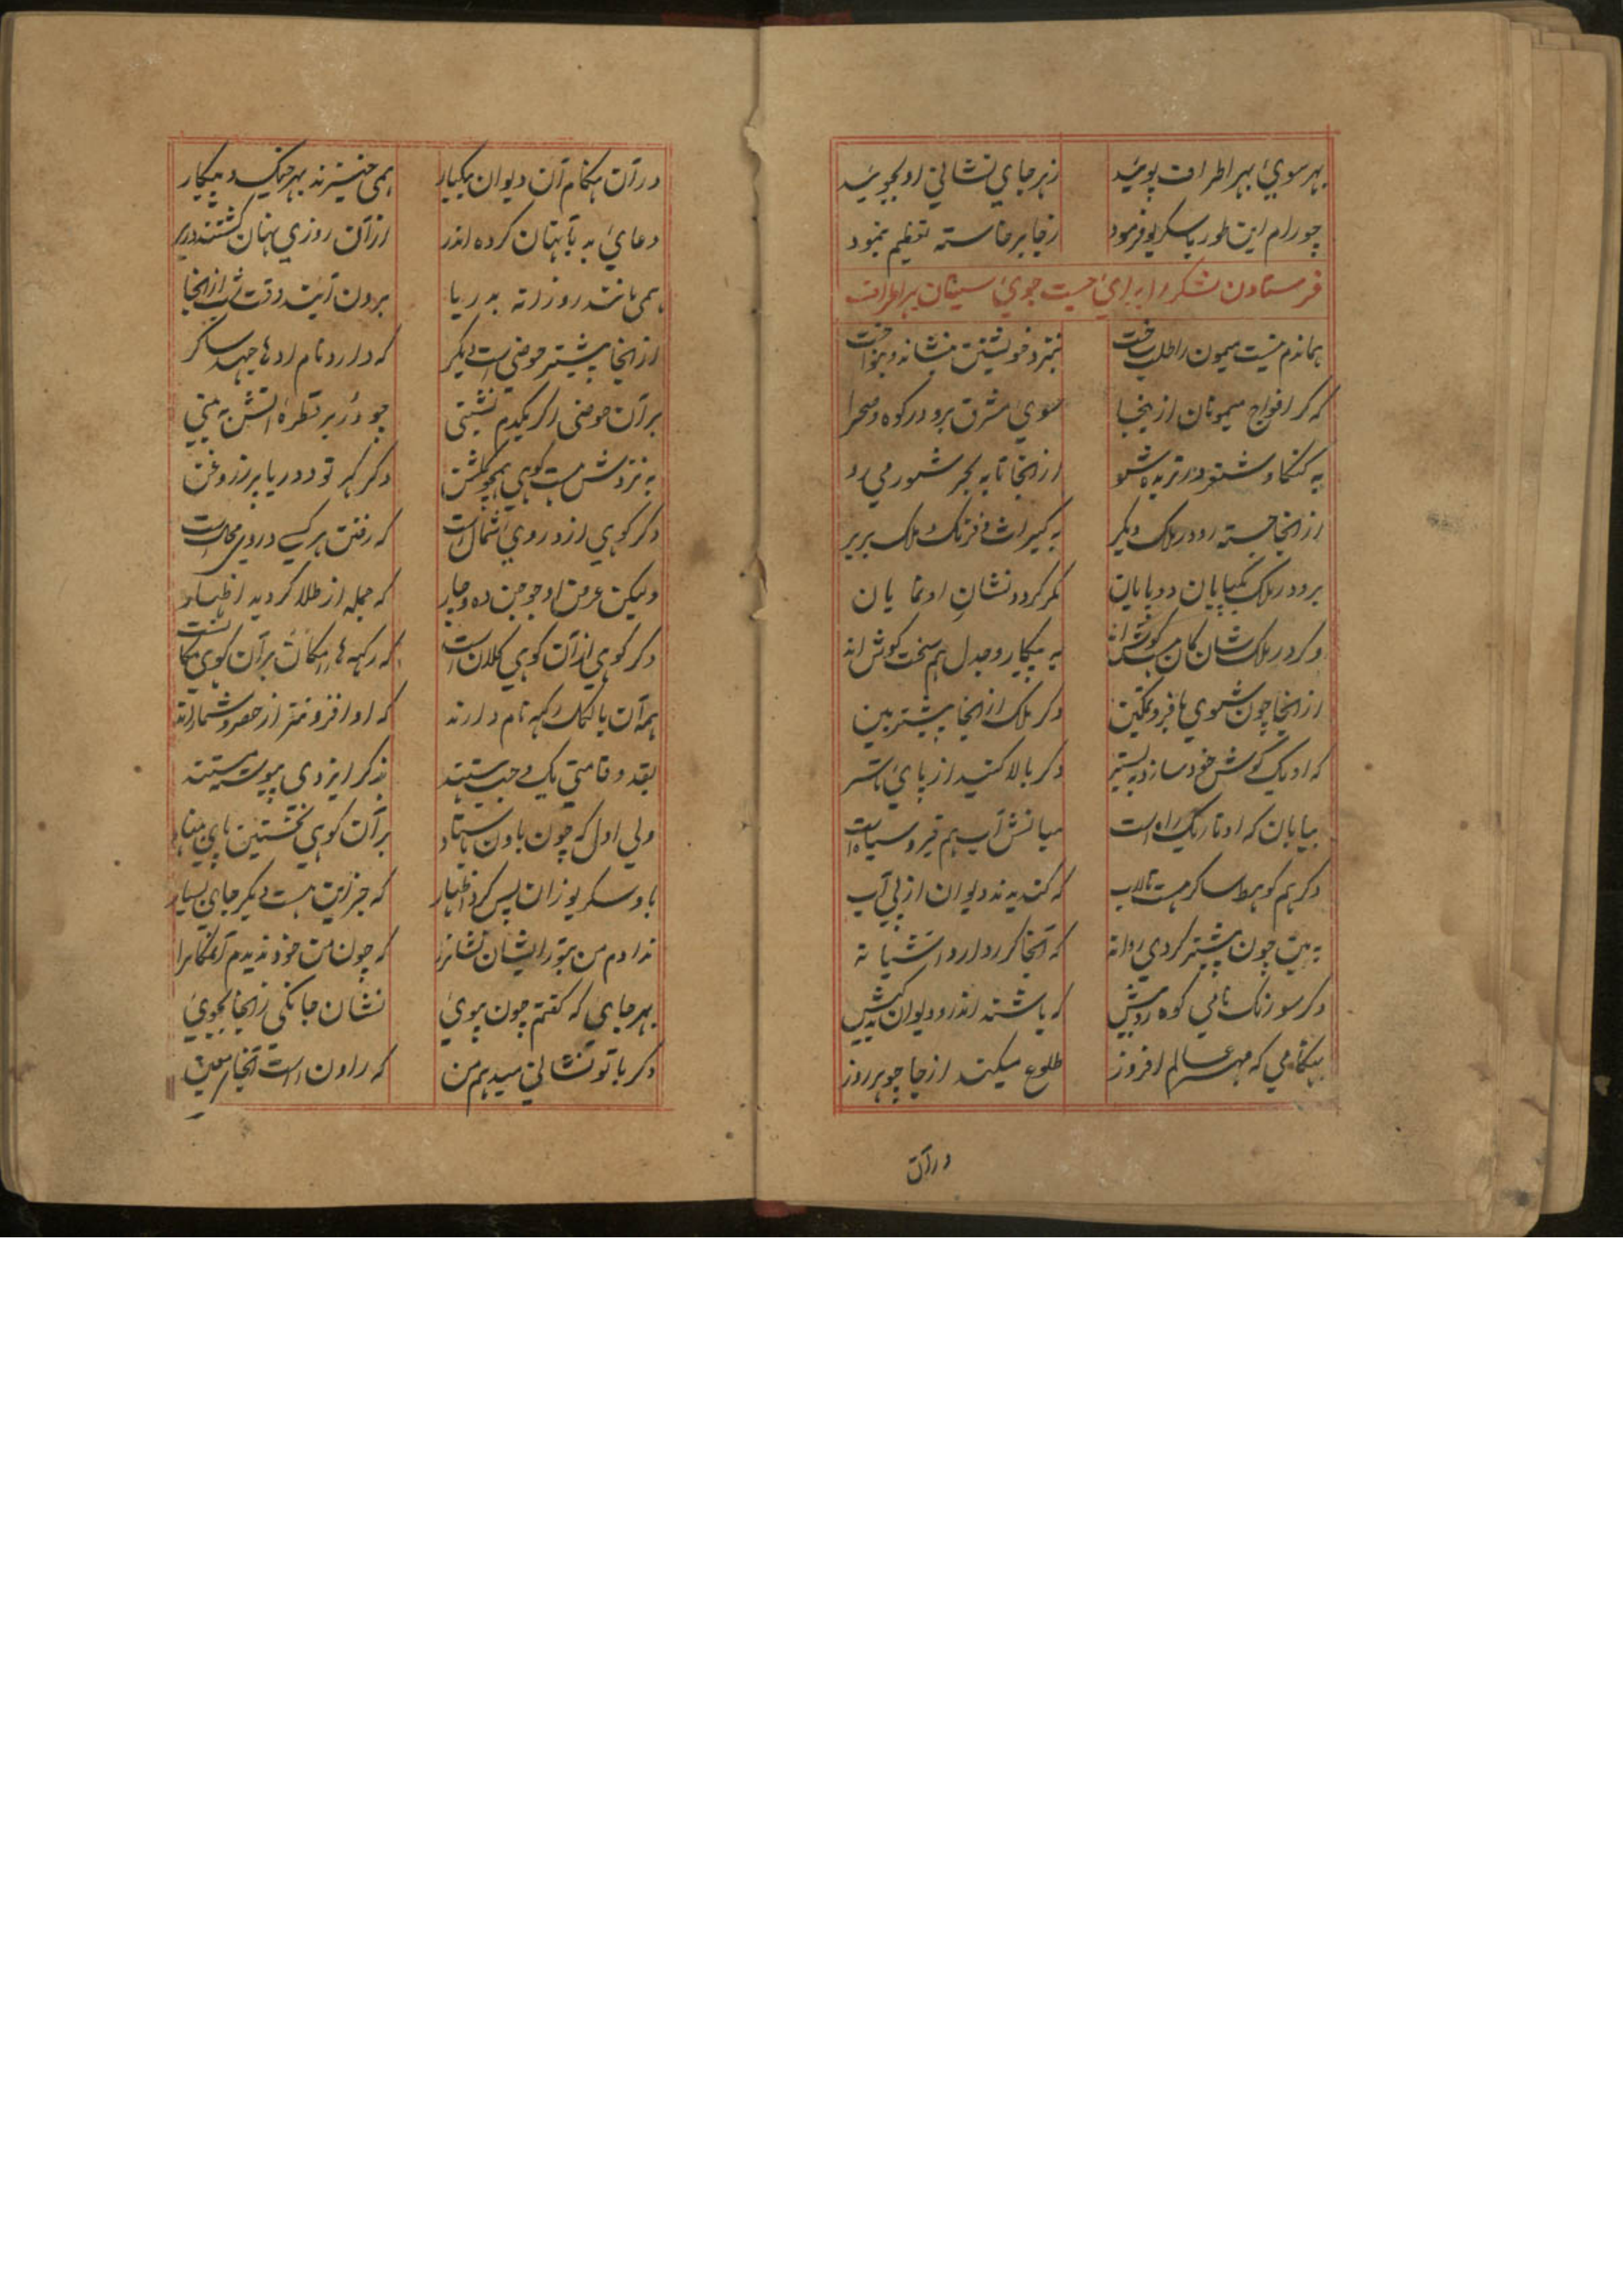 بهر سوی بهر اطراف پوئید زهر جای نشانی او بجوئید
چو رام این طور با سکریو فرمود زجا برخاسته تعظیم بنمود
فرستادن لشکر را برای جست جوی سیتان بهر اطراف
هماندم بنیست میمون را طلب ساخت بنزد خویشتن بنشاند و بنواخت
که کر افواج میمونان ازینجا سوی مشرق برو در کوه و صحرا
به کنکا و شو ازانجا تا به بحر شور میرو
ازانجا جسته رو در ملک دیکر به کیرات و فرنک ملک بربر
برو در ملک یکپایان دوپایان مکر کردد نشان او نمایان
وکر در ملک شان کان کوش اند به پیکار و جدل هم سخت کوش اند
ازانجا چون شوی با فر و تمکین دکر ملک ازانجا پیشتر بین
که او یک گوش خود سازد به بستر دکر بالا کشید از پای تا سر
بیابان که او تاریک راه است میانش آب هم قیر و سیاه است
دکر هم کوه ساکر هست تالاب که کندیدند دیوان از پی آب
به بین چون پیشتر کردی روانه که آنجا کرر دارد آشیانه
دکر سو زنک نامی کوه در پیش که باشند اندرو دیوان
بهنکامی که مهر عالم افروز طلوع میکند از جا چو هر روز
درآن
درآن هنکام آن دیوان یکبار همی خیزند بهر جنک و پیکار
دعای بد بآنهان کرده اندر ازآن روزی نهان کشتند
همی باشند روزانه به دریا برون آیند وقت شب ازانجا
ازانجا پیشتر حوضی است دیکر که دارد نام او ها ساکر
برآن حوضی اکر یکدم نشینی چو در بر قطرۀ آتش به بینی
به نزدش هست کوهی همچو کلشن دکر تو دو دریا پر ز روغن
دکر کوهی ازو روی شمال است که رفتن هر کسی در وی محال است
ولیکن عرض او جوجن ده و چار که جمله از طلا کردید اظهار
دکر کوهی ازآن کوهی کلان است که رکهه ها را مکان برآن کوهی
همه آن بالکک رکهه نام دارند که او افزونتر از حصر و شمارند
بقد و قامتی یک وجب هستند بذکر ایزدی پیوسته هستند
ولی اول که چون باون ستاد برآن کوهی نخستین پای بنهاد
باو سکریو زان پس کرد اظهار که جزاین هست دیکر جای بسیار
ندادم من بتو زایشان نشانرا که چون من خود ندیدم آنمکانرا
بهر جای که گفتم چون بپوی نشان جانکی زانجا بجوی
دکر با تو نشانی میدهم من که راون است آنجا معین